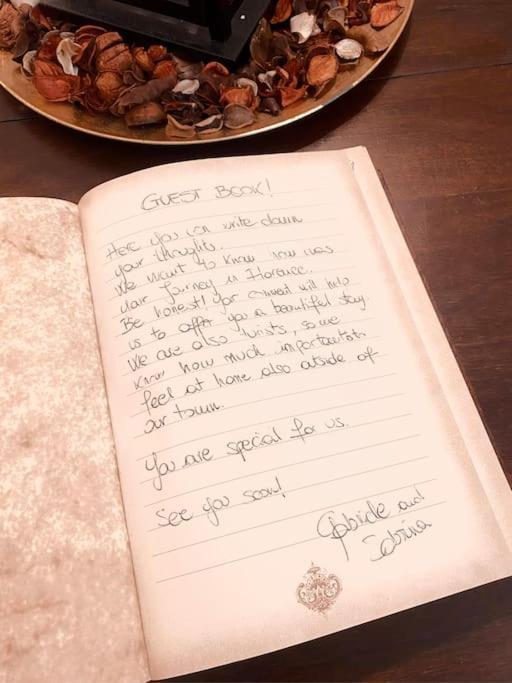 GUEST BOOK!
Here you can write down
your thoughts.
We want to know how was
your journey in Florence.
Be honest! your comment will help
us to offer you a beautiful stay.
We are also turists, so we
know how much important its
feel at home also outside of
our town.
You are special for us.
See you soon!
Gabriele and
Sabrina